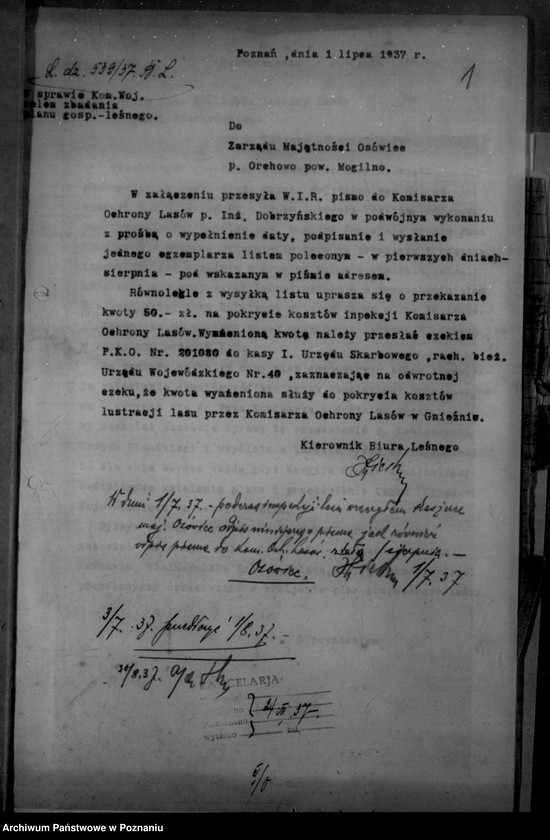 Poznań ,dnia 1 lipca 1937 r.
L. dz. 539/37. B. L.
1
W sprawie Kom.Woj.
celem zbadania
planu gosp.-leśnego.
Do
Zarządu Majętności Osówiec
p. Orchowo pow. Mogilno.
W załączeniu przesyła W.I.R. pismo do Komisarza
Ochrony Lasów p. Inż. Dobrzyńskiego w podwójnym wykonaniu
z prośbą o wypełnienie daty, podpisanie i wysłanie
jednego egzemplarza listem poleconym - w pierwszych dniach-
sierpnia - pod wskazanym w piśmie adresem.
Równolegle z wysyłką listu uprasza się o przekazanie
kwoty 50.- zł. na pokrycie kosztów inspekcji Komisarza
Ochrony Lasów.Wymienioną kwotę należy przesłać czekiem
P.K.O. Nr. 201080 do kasy I. Urzędu Skarbowego ,rach. bież.
Urzędu Wojewódzkiego Nr.40 ,zaznaczając na odwrotnej
czeku,że kwota wymieniona służy do pokrycia kosztów
lustracji lasu przez Komisarza Ochrony Lasów w Gnieźnie.
Kierownik Biura Leśnego
W dniu 1/7. 37. - podczas inspekcji
maj. Osówiec odpis niniejszego pisma jak również
odpis pisma do Kom. Och. Lasów.
Osówiec, 1/7. 37
3/7. 37. przedłożyć 1/8. 37. -
30/8. 37.
KANCELARJA:
wysłano
Archiwum Państwowe w Poznaniu